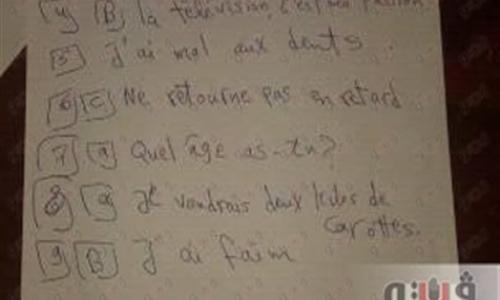 4 B la télévision, c'est ma passion
5 J'ai mal aux dents.
6 C Ne retourne pas en retard
7 a Quel âge as-tu?
8 a Je voudrais deux kilos de
carottes.
9 B J'ai faim